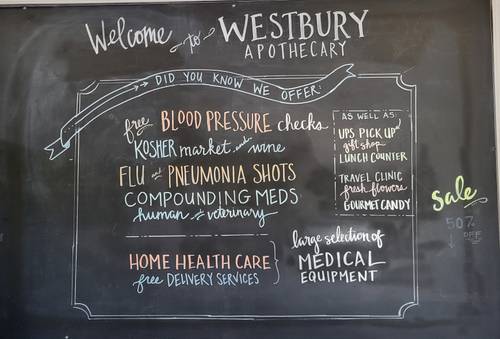 Welcome to WESTBURY
APOTHECARY
DID YOU KNOW WE OFFER:
free BLOOD PRESSURE checks
KOSHER market and wine
FLU and PNEUMONIA SHOTS
COMPOUNDING MEDS
human & veterinary
HOME HEALTH CARE
free DELIVERY SERVICES
AS WELL AS:
UPS PICK UP
gift shop
LUNCH COUNTER
TRAVEL CLINIC
fresh flowers
GOURMET CANDY
large selection of
MEDICAL
EQUIPMENT
sale
50%
OFF